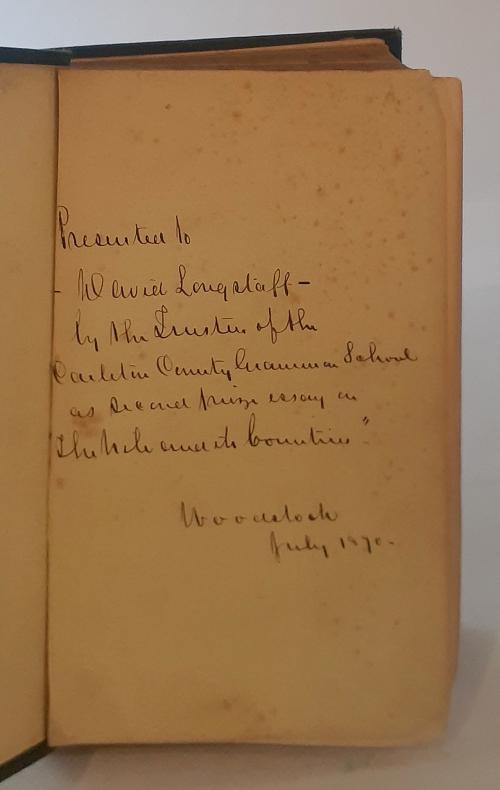 Presented to
- David Longstaff -
by the Trustees of the
Carleton County Grammar School
as second prize essay on
"The Nile and its Countries"
Woodstock
July 1870.